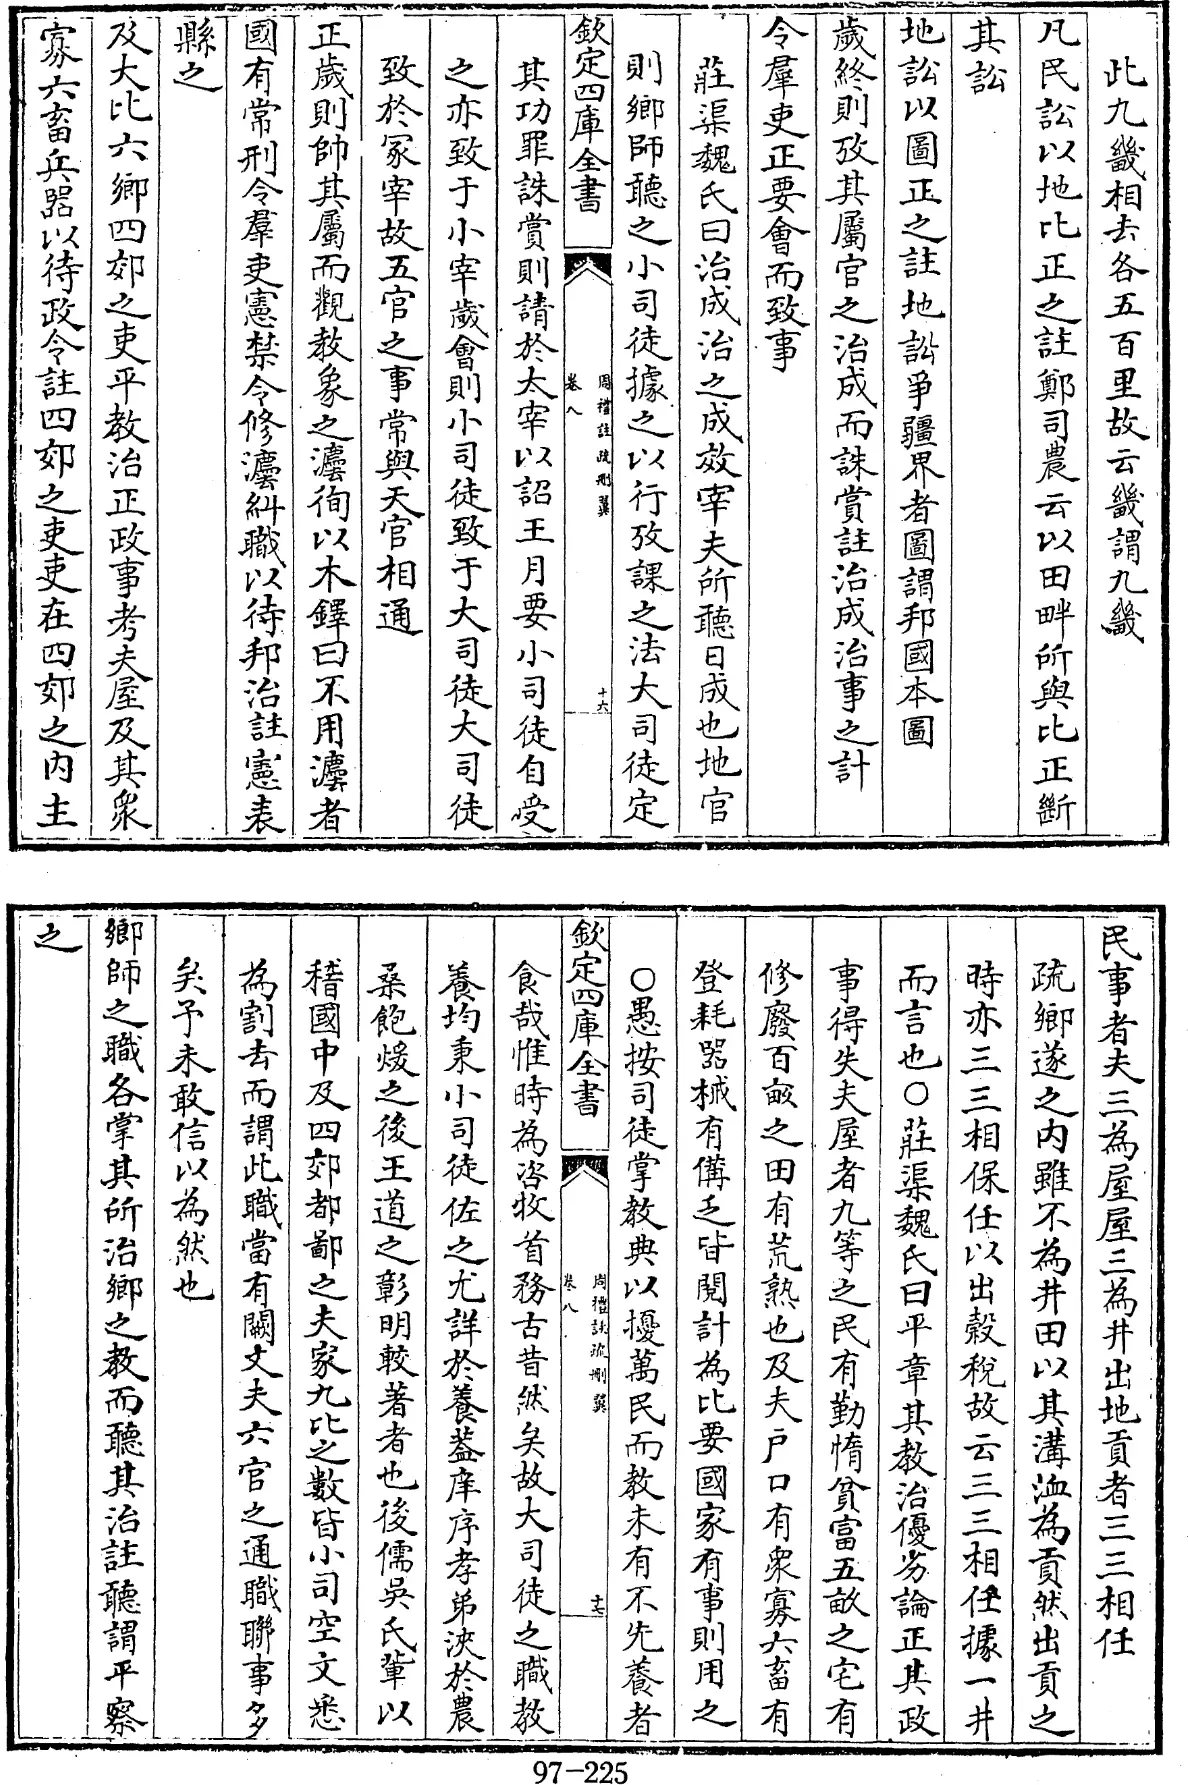 此九畿相去各五百里故云畿謂九畿
凡民訟以地比正之註鄭司農云以田畔所與比正斷
其訟
地訟以圖正之註地訟爭疆界者圖謂邦國本圖
歲終則攷其屬官之治成而誅賞註治成治事之計
令羣吏正要會而致事
莊渠魏氏曰治成治之成效宰夫所聽日成也地官
則鄉師聽之小司徒據之以行攷課之法大司徒定
欽定四庫全書
周禮註疏刪翼
卷八
十六
其功罪誅賞則請於太宰以詔王月要小司徒自受
之亦致于小宰歲會則小司徒致于大司徒大司徒
致於冢宰故五官之事常與天官相通
正歲則帥其屬而觀教象之灋徇以木鐸曰不用灋者
國有常刑令羣吏憲禁令修灋糾職以待邦治註憲表
縣之
及大比六鄉四郊之吏平教治正政事考夫屋及其衆
寡六畜兵器以待政令註四郊之吏吏在四郊之内主
民事者夫三為屋屋三為井出地貢者三三相任
疏鄉遂之内雖不為井田以其溝洫為貢然出貢之
時亦三三相保任以出穀稅故云三三相任據一井
而言也○莊渠魏氏曰平章其教治優劣論正其政
事得失夫屋者九等之民有勤惰貧富五畝之宅有
修廢百畝之田有荒熟也及夫戶口有衆寡六畜有
登耗器械有備乏皆閱計為比要國家有事則用之
○愚按司徒掌教典以擾萬民而教未有不先養者
欽定四庫全書
周禮註疏刪翼
卷八
十七
食哉惟時為咨牧首務古昔然矣故大司徒之職教
養均秉小司徒佐之尤詳於養葢庠序孝弟浹於農
桑飽煖之後王道之彰明較著者也後儒吳氏軰以
稽國中及四郊都鄙之夫家九比之數皆小司空文悉
為割去而謂此職當有闕文夫六官之通職聯事多
矣予未敢信以為然也
鄉師之職各掌其所治鄉之教而聽其治註聽謂平察
之
97-225